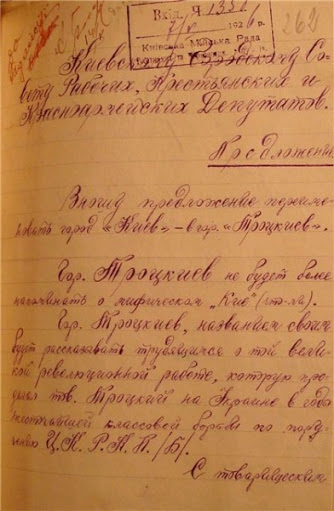 Вхід. № 1331
7/IV 1926 р.
262
Київська Міська Рада
Киевскому Городскому Со-
вету Рабочих, Крестьянских и
Красноармейских Депутатов.
Предложение
Вношу предложение переиме-
новать город "Киев" – в гор. "Троцкиев".
Гор. Троцкиев не будет более
напоминать о мифическом "Кие" (
Гор. Троцкиев, названием своим
будет рассказывать трудящимся о той вели-
кой революционной работе, которую про-
делал тов. Троцкий на Украине в годы
жесточайшей классовой борьбы по пору-
чению Ц.К.Р.К.П. /Б/.
С товарищеским